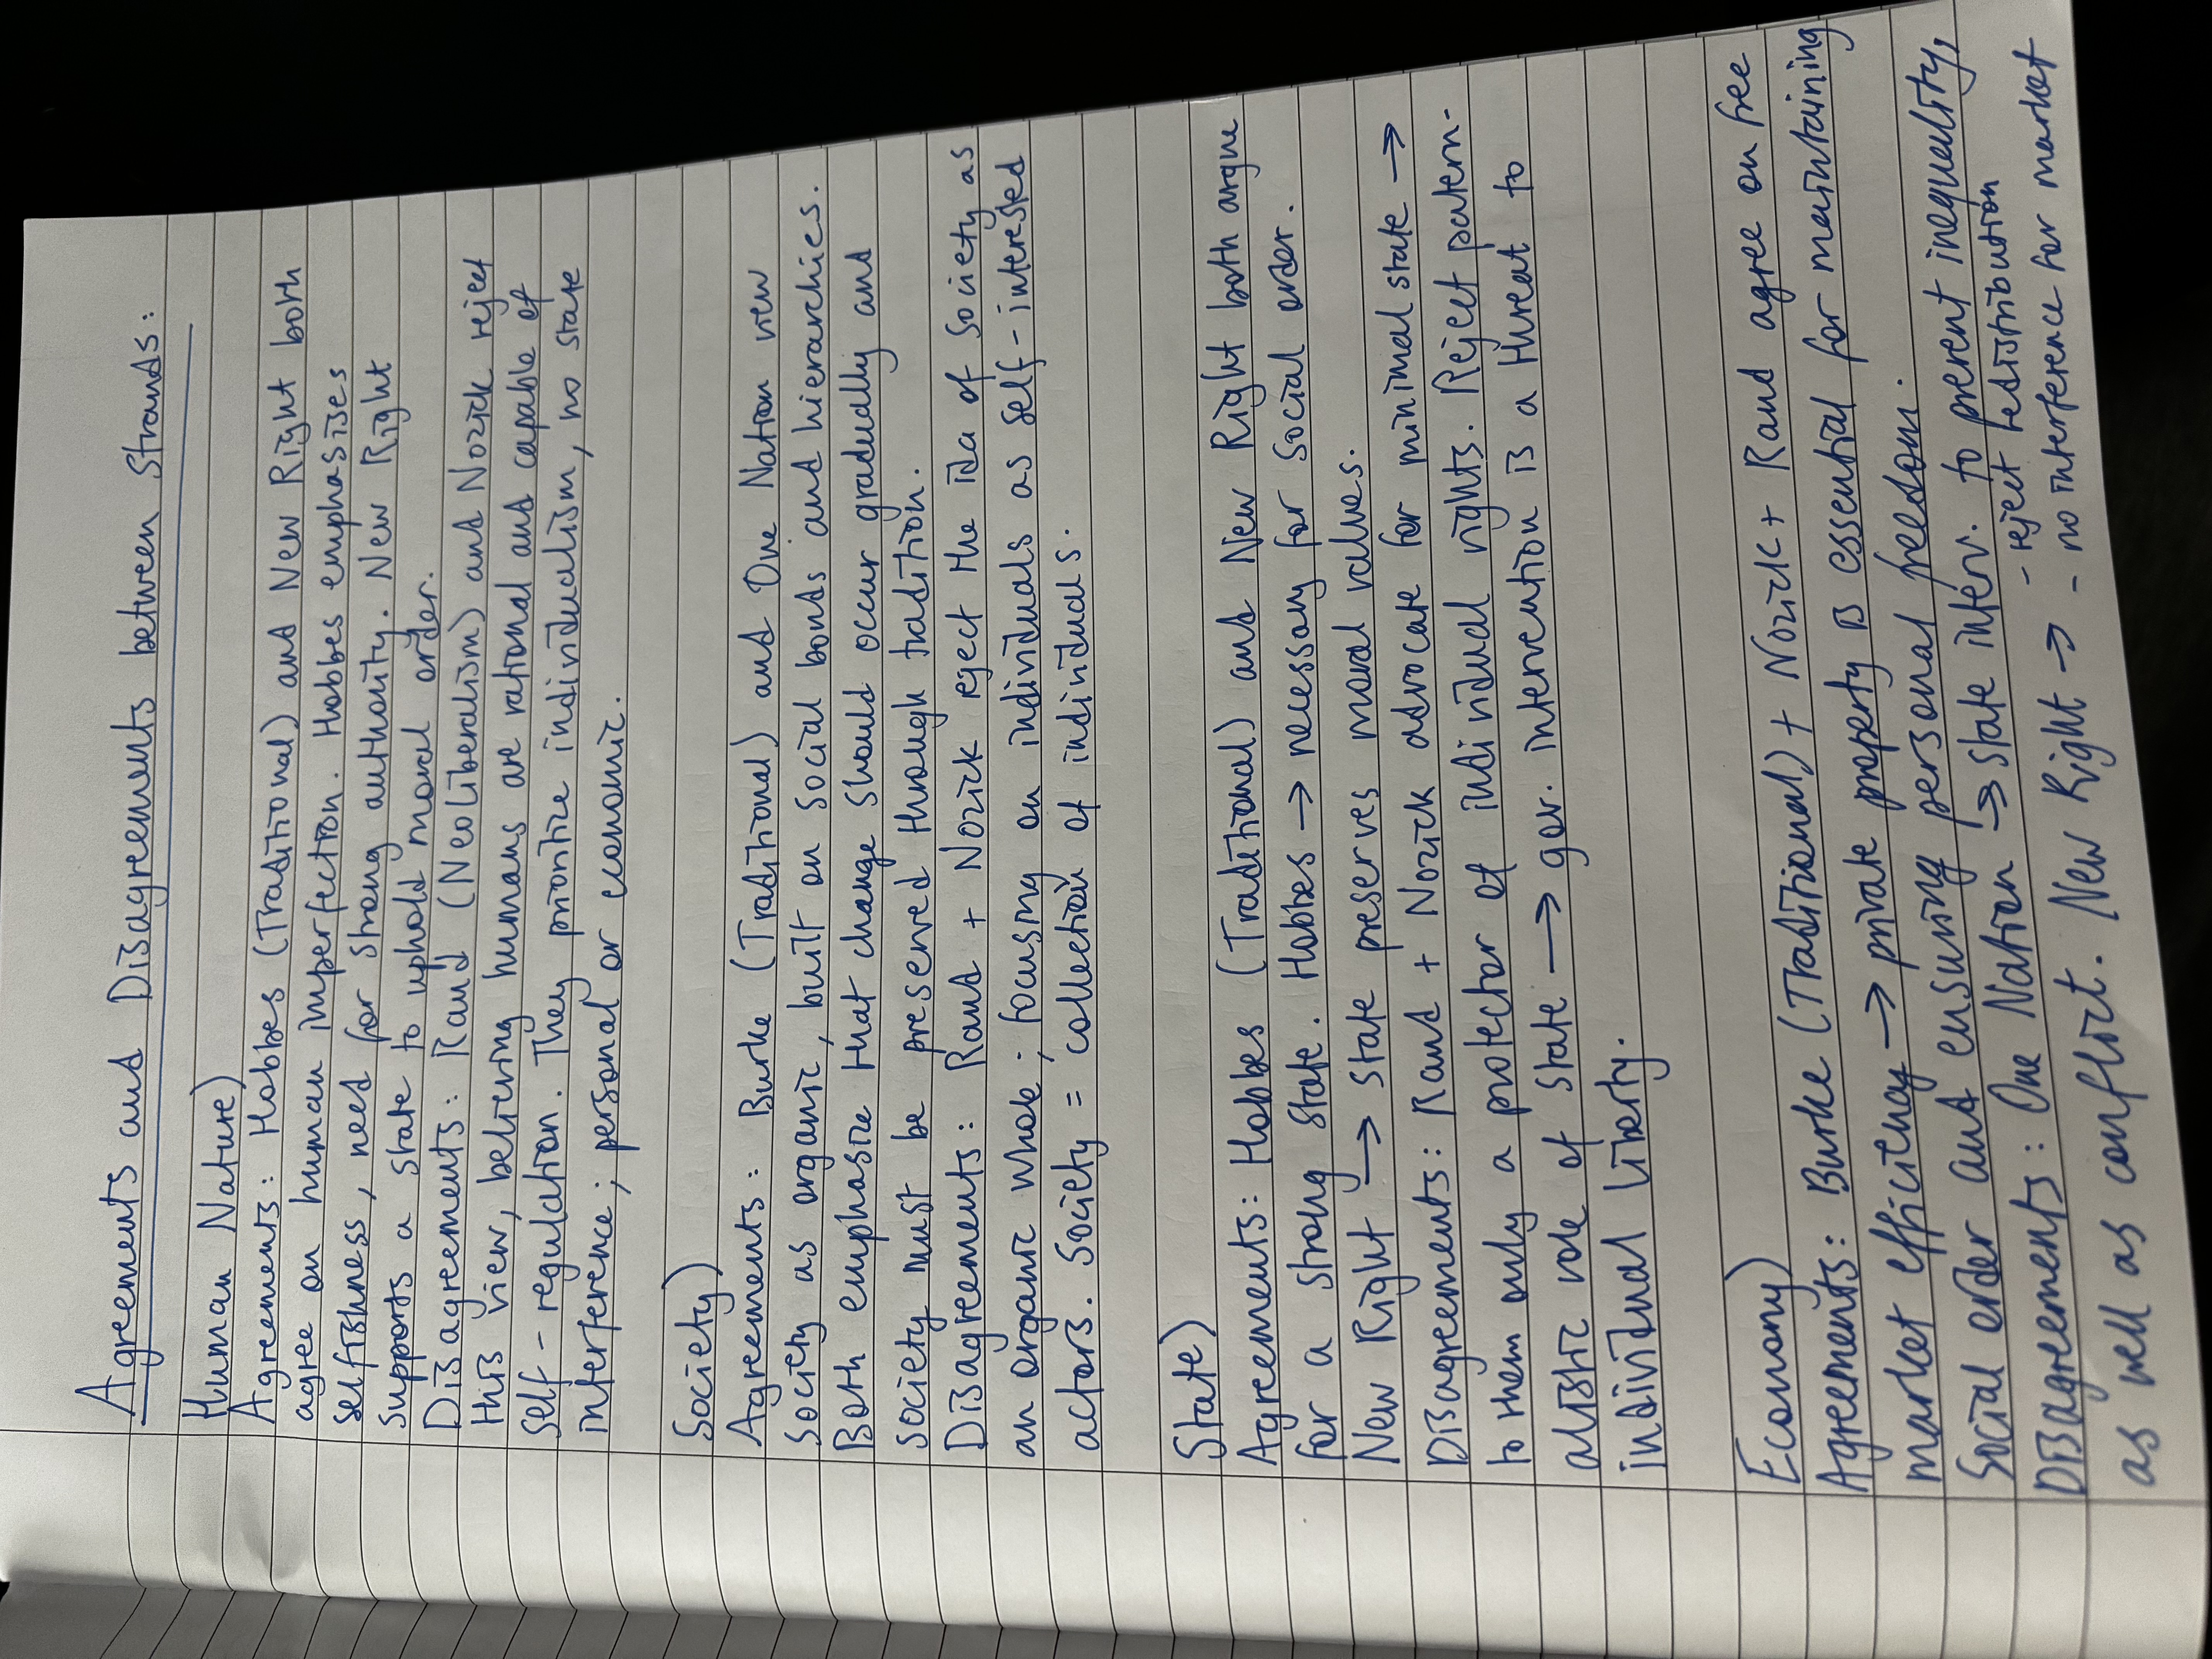 Agreements and Disagreements between Strands:
Human Nature)
Agreements: Hobbes (Traditional) and New Right both
agree on human imperfection. Hobbes emphasises
selfishness, need for strong authority. New Right
supports a state to uphold moral order.
Disagreements: Rand (Neoliberalism) and Nozick reject
this view, believing humans are rational and capable of
self-regulation. They prioritize individualism, no state
interference; personal or economic.
Society)
Agreements: Burke (Traditional) and One Nation view
society as organic, built on social bonds and hierarchies.
Both emphasize that change should occur gradually and
society must be preserved through tradition.
Disagreements: Rand + Nozick reject the ida of society as
an organic whole; focusing on individuals as self-interested
actors. Society = collection of individuals.
State)
Agreements: Hobbes (Traditional) and New Right both argue
for a strong state. Hobbes → necessary for social order.
New Right → state preserves moral values.
Disagreements: Rand + Nozick advocate for minimal state →
to them only a protector of individual rights. Reject patern-
alistic role of state → gov. intervention is a threat to
individual liberty.
Economy)
Agreements: Burke (Traditional) + Nozick + Rand agree on free
market efficiency → private property is essential for maintaining
social order and ensuring personal freedom.
Disagreements: One Nation → state interv. to prevent inequality,
as well as conflict. New Right → - reject redistribution
- no interference for market